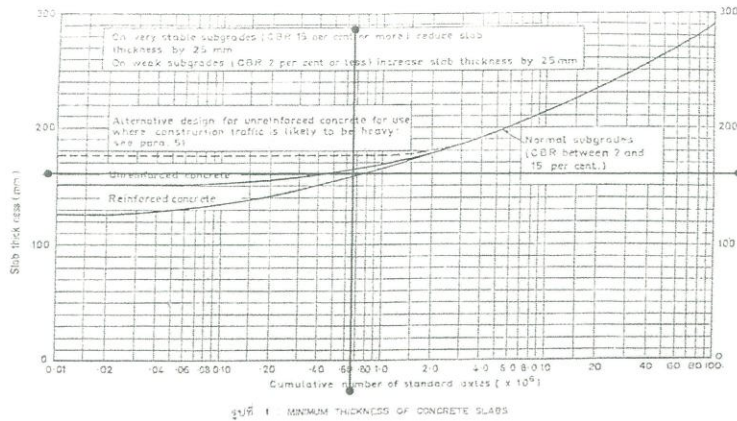 On very stable subgrades (CBR 15 per cent or more) reduce slab
thickness by 25 mm
On weak subgrades (CBR 2 per cent or less) increase slab thickness by 25 mm
Alternative design for unreinforced concrete for use
where construction traffic is likely to be heavy
see para. 5)
Normal subgrades
(CBR between 2 and
15 per cent.)
Unreinforced concrete
Reinforced concrete
Slab thickness (mm)
300
200
100
0
300
200
100
0
0·01 ·02 ·04 ·06 ·08 0·10 ·20 ·40 ·60 ·80 1·0 2·0 4·0 6·0 8·0 10 20 40 60 80 100
Cumulative number of standard axles ( x 10⁶)
รูปที่ 1 MINIMUM THICKNESS OF CONCRETE SLABS